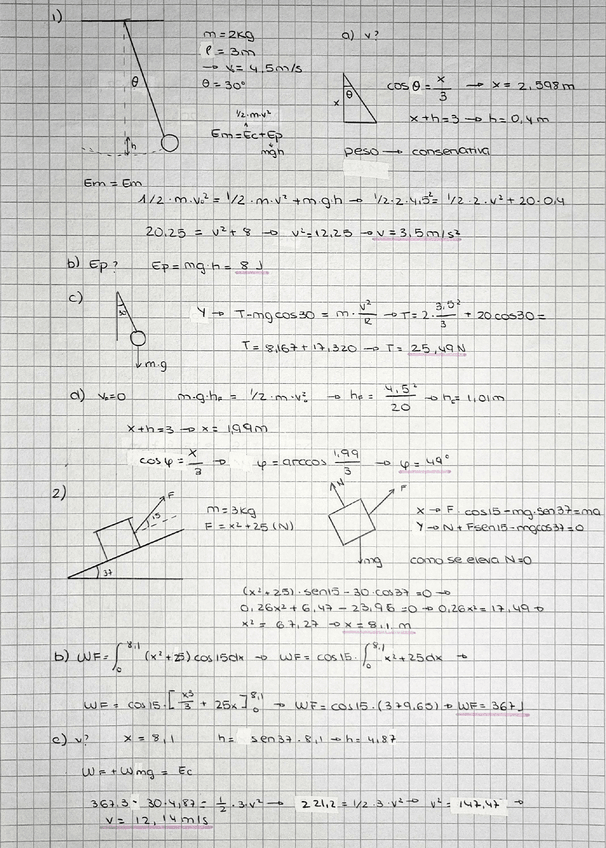 1)
m = 2kg
ℓ = 3m
→ v = 4,5 m/s
θ = 30°
θ
h
1/2·m·v²
Em = Ec + Ep
mgh
a) v?
θ
x
cosθ = x/3 → x = 2,598 m
x + h = 3 → h = 0,4 m
peso → conservativa
Em = Em
1/2 · m · v₀² = 1/2 · m · v² + m·g·h → 1/2 · 2 · 4,5² = 1/2 · 2 · v² + 20 · 0,4
20.25 = v² + 8 → v² = 12,25 → v = 3,5 m/s²
b) Ep? Ep = mg·h = 8 J
c)
30
m·g
Y → T - mg cos 30 = m · v²/R → T = 2 · 3,5²/3 + 20 cos 30 =
T = 8,167 + 17,320 → T = 25,49 N
d) v₀ = 0 m·g·hf = 1/2 · m · v₀² → hf = 4,5²/20 → hf = 1,01 m
x + h = 3 → x = 1,99 m
cosφ = x/3 → φ = arccos 1,99/3 → φ = 49°
2)
F
15
37
m = 3kg
F = x² + 25 (N)
N
F
mg
X → F · cos 15 - mg · sen 37 = ma
Y → N + F sen 15 - mg cos 37 = 0
como se eleva N = 0
(x² + 25) · sen 15 - 30 · cos 37 = 0 →
0,26x² + 6,47 - 23,96 = 0 → 0,26x² = 17,49 →
x² = 67,27 → x = 8,1 m
b) WF = ∫₀^8,1 (x² + 25) cos 15 dx → WF = cos 15 · ∫₀^8,1 x² + 25 dx →
WF = cos 15 · [x³/3 + 25x]₀^8,1 → WF = cos 15 · (379,65) → WF = 367 J
c) v? x = 8,1 h = sen 37 · 8,1 → h = 4,87
WF + Wmg = Ec
367.3 - 30 · 4,87 = 1/2 · 3 · v² → 221,2 = 1/2 · 3 · v² → v² = 147,47 →
v = 12,14 m/s